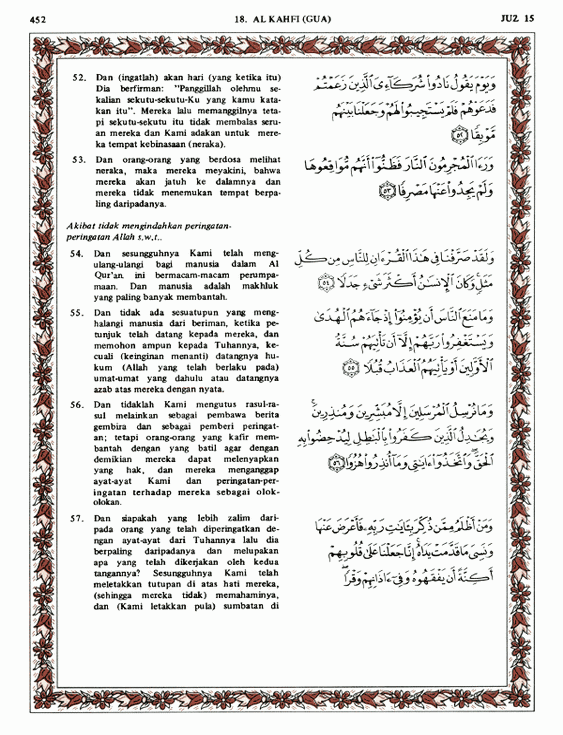 452 18. AL KAHFI (GUA) JUZ 15
52. Dan (ingatlah) akan hari (yang ketika itu)
Dia berfirman: "Panggillah olehmu se-
kalian sekutu-sekutu-Ku yang kamu kata-
kan itu". Mereka lalu memanggilnya teta-
pi sekutu-sekutu itu tidak membalas seru-
an mereka dan Kami adakan untuk mere-
ka tempat kebinasaan (neraka).
وَيَوْمَ يَقُولُ نَادُوا۟ شُرَكَآءِىَ ٱلَّذِينَ زَعَمْتُمْ
فَدَعَوْهُمْ فَلَمْ يَسْتَجِيبُوا۟ لَهُمْ وَجَعَلْنَا بَيْنَهُم
مَّوْبِقًا ٥٢
53. Dan orang-orang yang berdosa melihat
neraka, maka mereka meyakini, bahwa
mereka akan jatuh ke dalamnya dan
mereka tidak menemukan tempat berpa-
ling daripadanya.
وَرَءَا ٱلْمُجْرِمُونَ ٱلنَّارَ فَظَنُّوٓا۟ أَنَّهُم مُّوَاقِعُوهَا
وَلَمْ يَجِدُوا۟ عَنْهَا مَصْرِفًا ٥٣
Akibat tidak mengindahkan peringatan-
peringatan Allah s,w,t..
54. Dan sesungguhnya Kami telah meng-
ulang-ulangi bagi manusia dalam Al
Qur'an ini bermacam-macam perumpa-
maan. Dan manusia adalah makhluk
yang paling banyak membantah.
وَلَقَدْ صَرَّفْنَا فِى هَٰذَا ٱلْقُرْءَانِ لِلنَّاسِ مِن كُلِّ
مَثَلٍ وَكَانَ ٱلْإِنسَٰنُ أَكْثَرَ شَىْءٍ جَدَلًا ٥٤
55. Dan tidak ada sesuatupun yang meng-
halangi manusia dari beriman, ketika pe-
tunjuk telah datang kepada mereka, dan
memohon ampun kepada Tuhannya, ke-
cuali (keinginan menanti) datangnya hu-
kum (Allah yang telah berlaku pada)
umat-umat yang dahulu atau datangnya
azab atas mereka dengan nyata.
وَمَا مَنَعَ ٱلنَّاسَ أَن يُؤْمِنُوٓا۟ إِذْ جَآءَهُمُ ٱلْهُدَىٰ
وَيَسْتَغْفِرُوا۟ رَبَّهُمْ إِلَّآ أَن تَأْتِيَهُمْ سُنَّةُ
ٱلْأَوَّلِينَ أَوْ يَأْتِيَهُمُ ٱلْعَذَابُ قُبُلًا ٥٥
56. Dan tidaklah Kami mengutus rasul-ra-
sul melainkan sebagai pembawa berita
gembira dan sebagai pemberi peringat-
an; tetapi orang-orang yang kafir mem-
bantah dengan yang batil agar dengan
demikian mereka dapat melenyapkan
yang hak, dan mereka menganggap
ayat-ayat Kami dan peringatan-per-
ingatan terhadap mereka sebagai olok-
olokan.
وَمَا نُرْسِلُ ٱلْمُرْسَلِينَ إِلَّا مُبَشِّرِينَ وَمُنذِرِينَ ۚ
وَيُجَٰدِلُ ٱلَّذِينَ كَفَرُوا۟ بِٱلْبَٰطِلِ لِيُدْحِضُوا۟ بِهِ
ٱلْحَقَّ ۖ وَٱتَّخَذُوٓا۟ ءَايَٰتِى وَمَآ أُنذِرُوا۟ هُزُوًا ٥٦
57. Dan siapakah yang lebih zalim dari-
pada orang yang telah diperingatkan de-
ngan ayat-ayat dari Tuhannya lalu dia
berpaling daripadanya dan melupakan
apa yang telah dikerjakan oleh kedua
tangannya? Sesungguhnya Kami telah
meletakkan tutupan di atas hati mereka,
(sehingga mereka tidak) memahaminya,
dan (Kami letakkan pula) sumbatan di
وَمَنْ أَظْلَمُ مِمَّن ذُكِّرَ بِـَٔايَٰتِ رَبِّهِۦ فَأَعْرَضَ عَنْهَا
وَنَسِىَ مَا قَدَّمَتْ يَدَاهُ ۚ إِنَّا جَعَلْنَا عَلَىٰ قُلُوبِهِمْ
أَكِنَّةً أَن يَفْقَهُوهُ وَفِىٓ ءَاذَانِهِمْ وَقْرًا ۖ